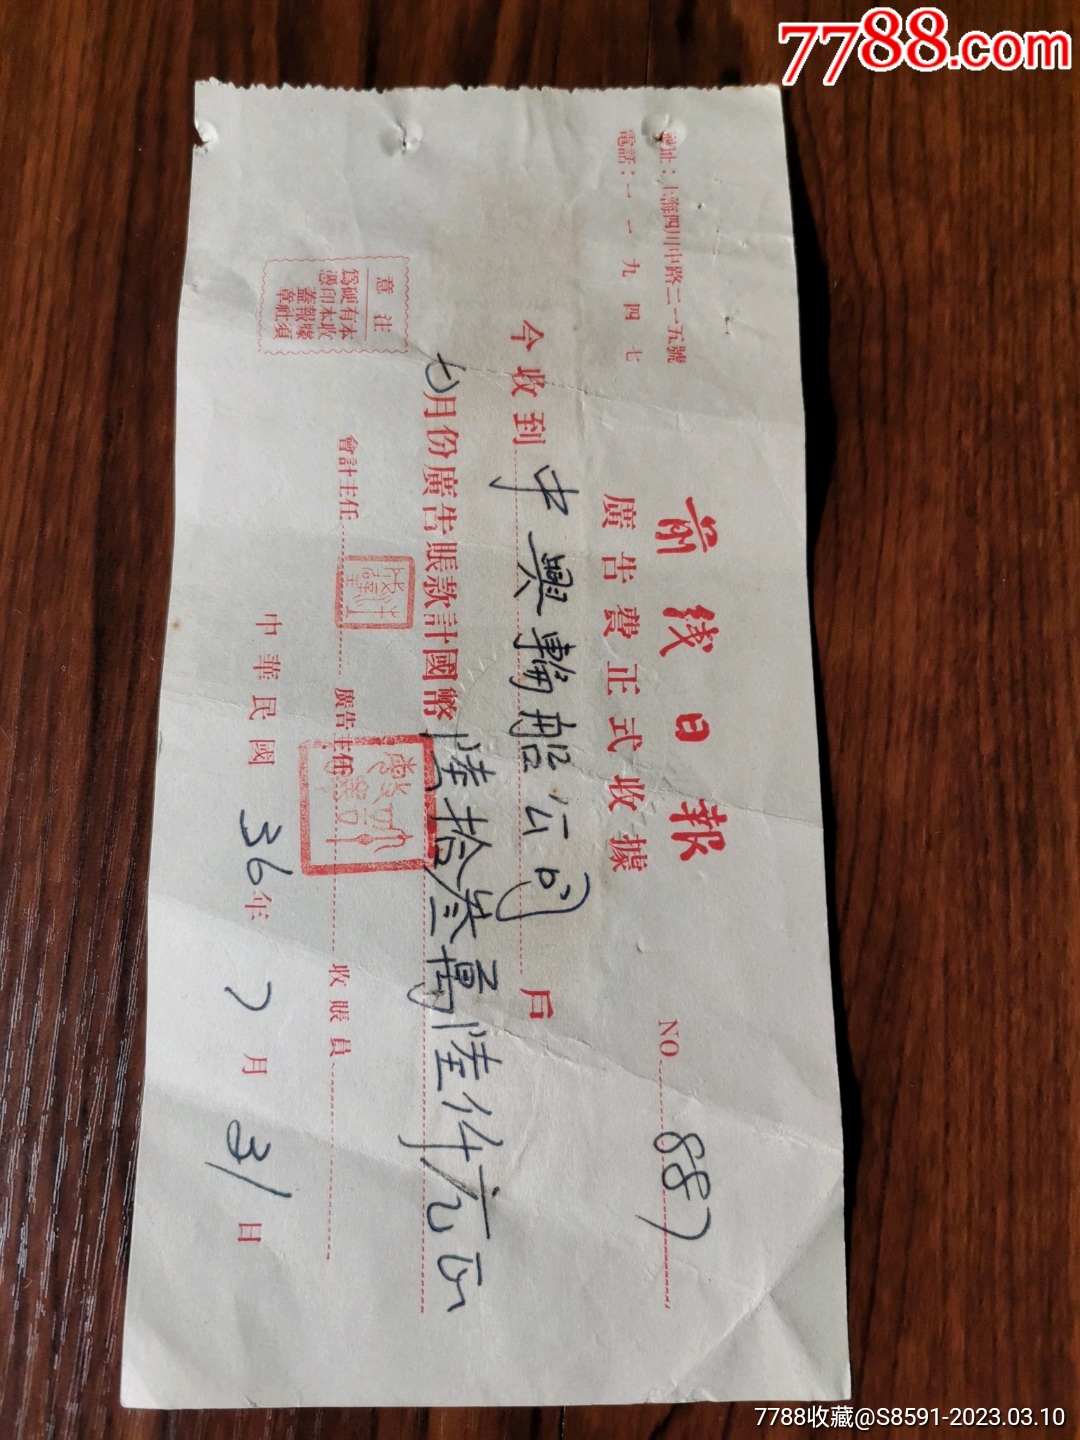 7788.com
社址：上海四川中路二一五號
電話：一一九四七
前线日報
廣告費正式收據
NO. 887
今收到中興輪船公司戶
七月份廣告賬款計國幣陸拾叁萬陸仟元正
注意
本收據須
有本報社
硬印蓋章
為憑
會計主任 廣告主任 收賬員
中華民國36年7月31日
7788收藏@S8591-2023.03.10